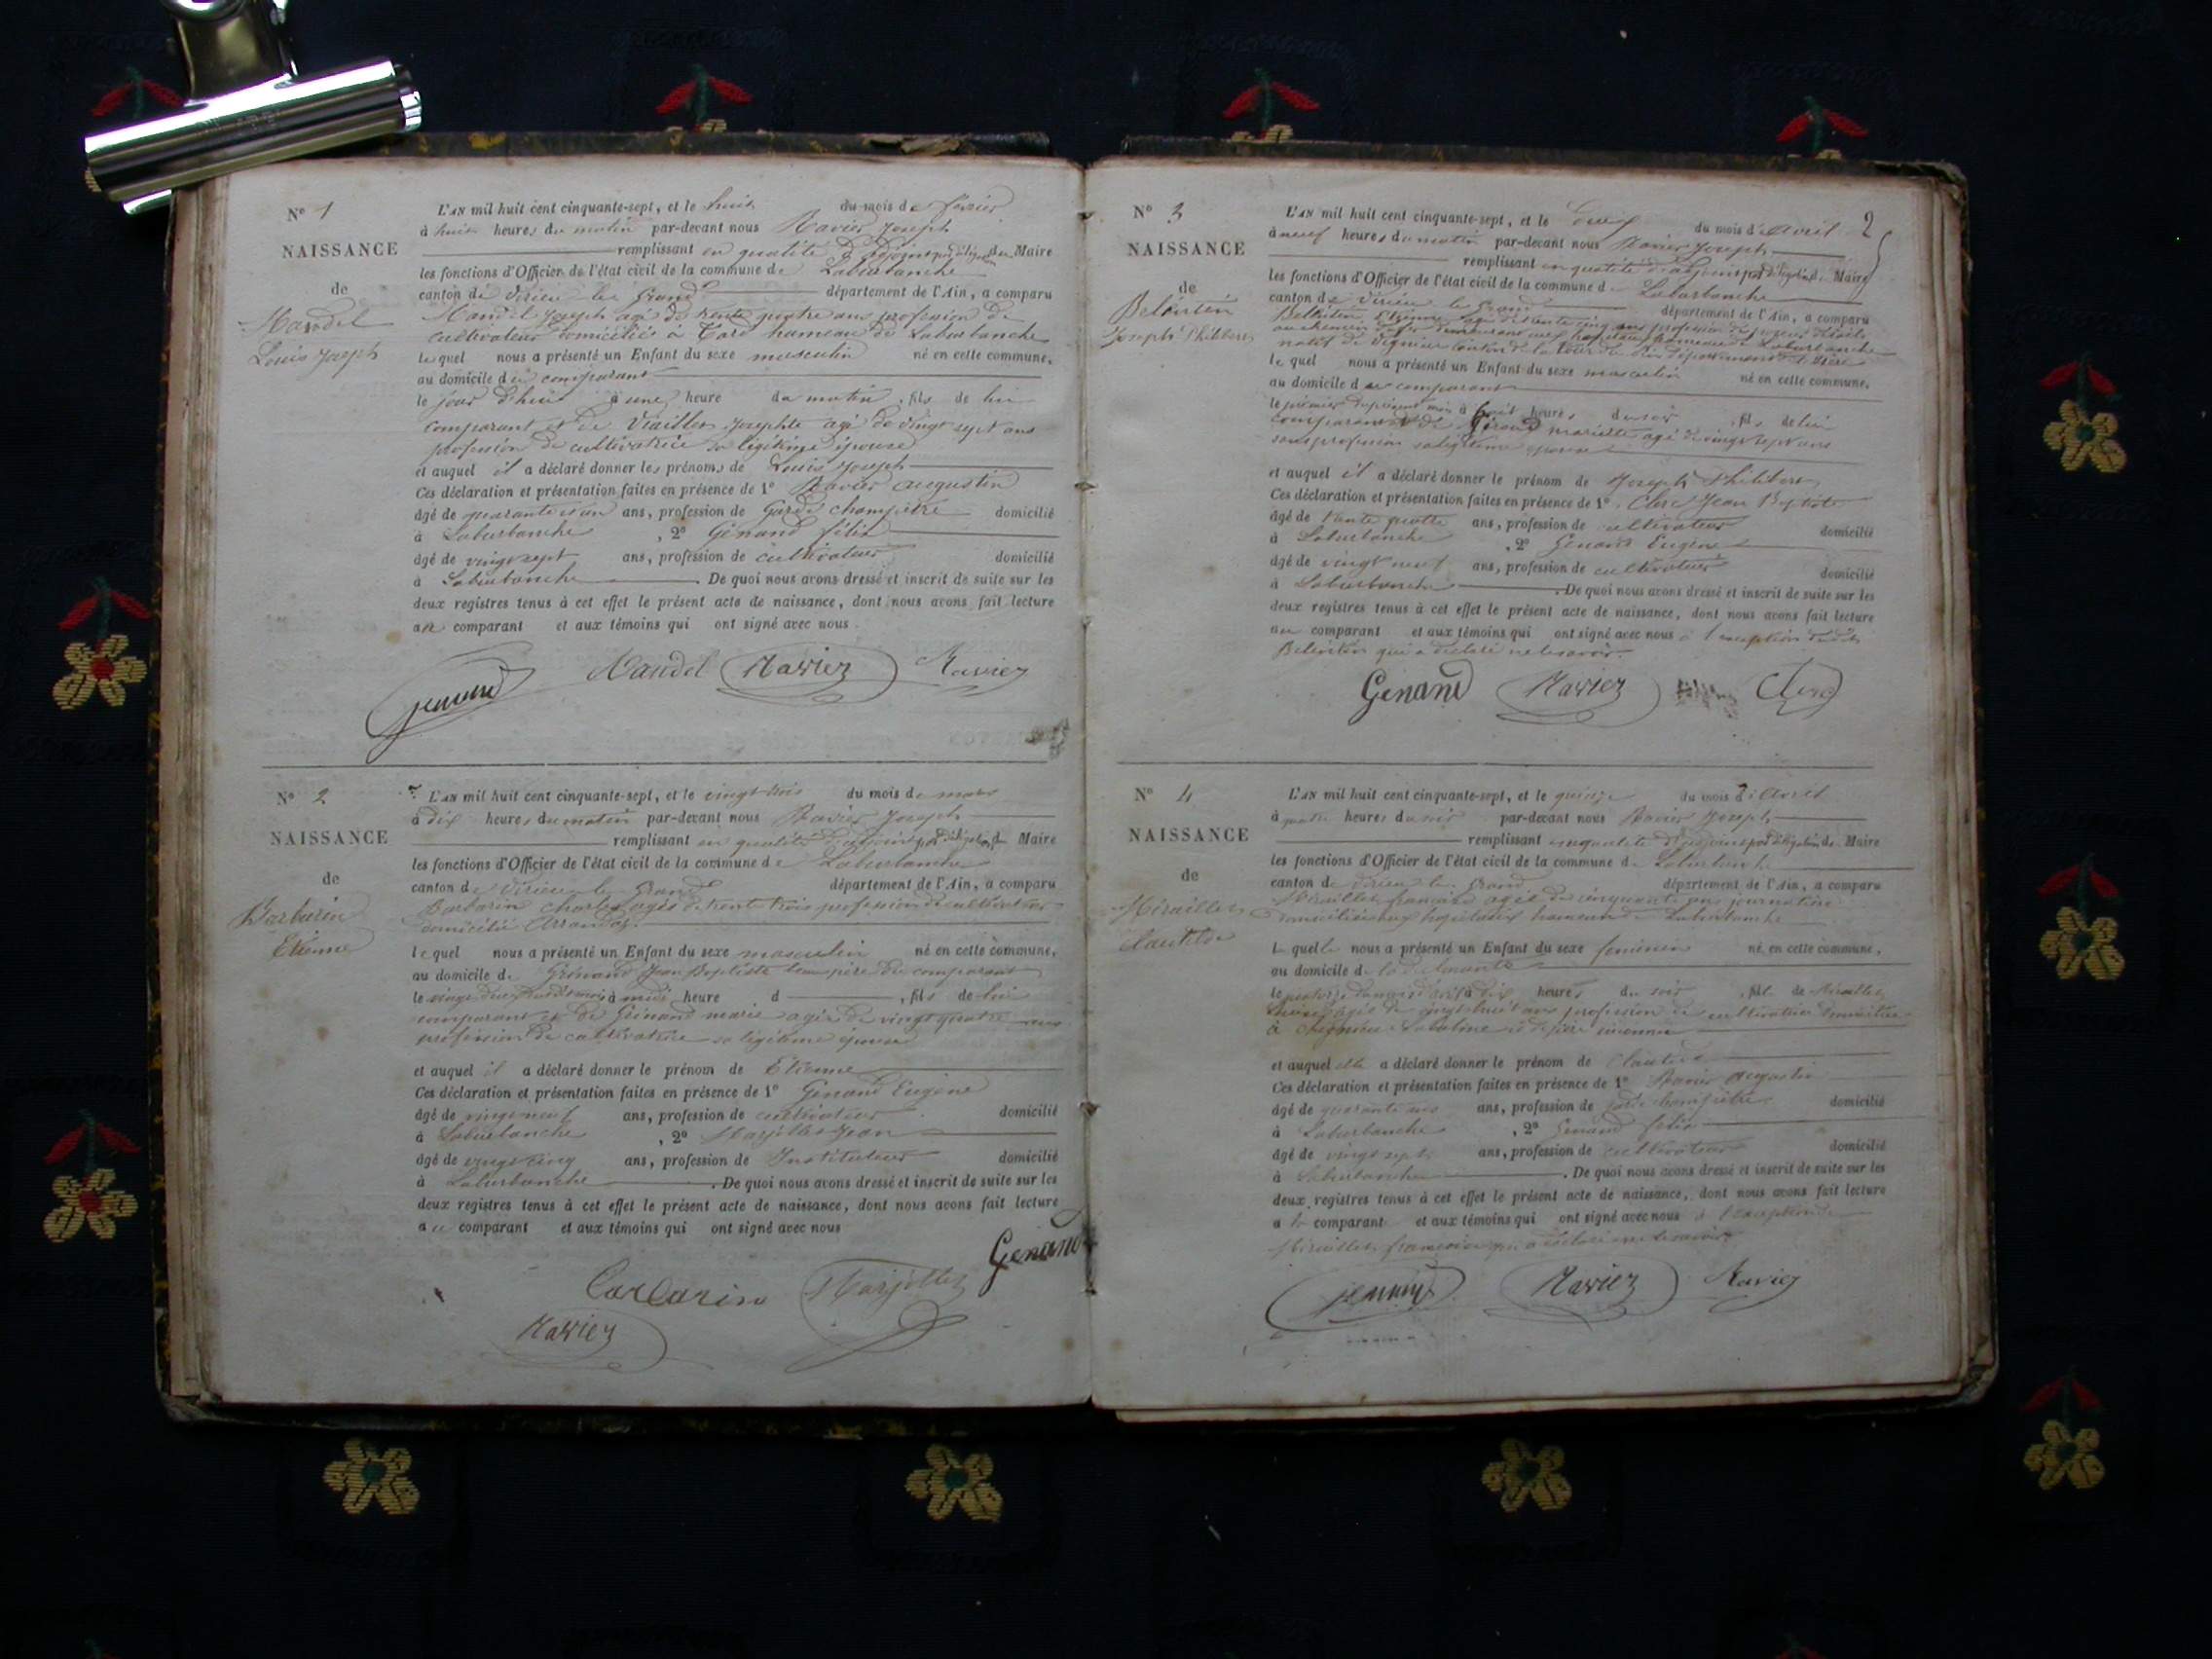 N° 1
NAISSANCE
de
Mandel
Louis Joseph
L'AN mil huit cent cinquante-sept, et le huit du mois de février
à huit heures du matin par-devant nous Ravier Joseph
remplissant en qualité d'adjoint par délégation du Maire
les fonctions d'Officier de l'état civil de la commune de Laburbanche
canton de Virieu le Grand département de l'Ain, a comparu
Mandel Joseph agé de trente quatre ans profession de
cultivateur domicilié à hameau de Laburbanche
lequel nous a présenté un Enfant du sexe masculin né en cette commune,
au domicile du comparant
le jour d'hui à une heure du matin, fils de lui
comparant et de Viallet Josephte agé de vingt sept ans
profession de cultivatrice sa légitime épouse
et auquel il a déclaré donner les prénoms de Louis Joseph
Ces déclaration et présentation faites en présence de 1° Ravier augustin
âgé de quarante un ans, profession de Garde champêtre domicilié
à Laburbanche, 2° Génand félix
âgé de vingt sept ans, profession de cultivateur domicilié
à Laburbanche. De quoi nous avons dressé et inscrit de suite sur les
deux registres tenus à cet effet le présent acte de naissance, dont nous avons fait lecture
au comparant et aux témoins qui ont signé avec nous.
Genand Mandel Ravier Ravier
N° 2
NAISSANCE
de
Barbarin
Etienne
L'AN mil huit cent cinquante-sept, et le vingt trois du mois de mars
à dix heures du matin par-devant nous Ravier Joseph
remplissant en qualité d'adjoint par délégation du Maire
les fonctions d'Officier de l'état civil de la commune de Laburbanche
canton de Virieu le Grand département de l'Ain, a comparu
Barbarin charles agés de trente trois profession de cultivateur
domicilié Arrandas
lequel nous a présenté un Enfant du sexe masculin né en cette commune,
au domicile de Génand Jean Baptiste beau père du comparant
le vingt deux à midi heure d, fils de lui
comparant et de Génand marie agée de vingt quatre ans
profession de cultivatrice sa légitime épouse
et auquel il a déclaré donner le prénom de Etienne
Ces déclaration et présentation faites en présence de 1° Génand Eugène
âgé de vingt neuf ans, profession de cultivateur domicilié
à Laburbanche, 2° Marjollet Jean
âgé de vingt cinq ans, profession de Instituteur domicilié
à Laburbanche. De quoi nous avons dressé et inscrit de suite sur les
deux registres tenus à cet effet le présent acte de naissance, dont nous avons fait lecture
au comparant et aux témoins qui ont signé avec nous
Genand
Barbarin Marjollet
Ravier
2
N° 3
NAISSANCE
de
Belantin
Joseph Philibert
L'AN mil huit cent cinquante-sept, et le du mois d'Avril
à neuf heures du matin par-devant nous Ravier Joseph
remplissant en qualité d'adjoint par délégation du Maire
les fonctions d'Officier de l'état civil de la commune de Laburbanche
canton de Virieu le Grand département de l'Ain, a comparu
Etienne agé de trente cinq ans profession de
au chemin de fer demeurant aux hopitaux hameau de Laburbanche
natif de canton de la tour du Pin département de l'Isère
lequel nous a présenté un Enfant du sexe masculin né en cette commune,
au domicile du comparant
le premier du présent mois à huit heures du soir, fils de lui
comparant et de Giroud mariette agé de vingt sept ans
sans profession sa légitime épouse
et auquel il a déclaré donner le prénom de Joseph Philibert
Ces déclaration et présentation faites en présence de 1° Clerc Jean Baptiste
âgé de trente quatre ans, profession de cultivateur domicilié
à Laburbanche, 2° Génand Eugène
âgé de vingt neuf ans, profession de cultivateur domicilié
à Laburbanche. De quoi nous avons dressé et inscrit de suite sur les
deux registres tenus à cet effet le présent acte de naissance, dont nous avons fait lecture
au comparant et aux témoins qui ont signé avec nous à l'exception dudit
qui a déclaré ne le savoir.
Genand Ravier Clerc
N° 4
NAISSANCE
de
Mirailler
Clautilde
L'AN mil huit cent cinquante-sept, et le quinze du mois d'Avril
à quatre heures du soir par-devant nous Ravier Joseph
remplissant en qualité d'adjoint par délégation du Maire
les fonctions d'Officier de l'état civil de la commune de Laburbanche
canton de Virieu le Grand département de l'Ain, a comparu
Mirailler françoise agée de cinquante ans journalière
domiciliée aux hopitaux hameau de Laburbanche
Lequelle nous a présenté un Enfant du sexe féminin né en cette commune,
au domicile de la déclarante
le quatorze du mois d'avril à dix heures du soir, fille de Mirailler
agée de vingt huit ans profession de cultivatrice domiciliée
à et de père inconnu
et auquel elle a déclaré donner le prénom de Clautilde
Ces déclaration et présentation faites en présence de 1° Ravier augustin
âgé de quarante ans, profession de garde champêtre domicilié
à Laburbanche, 2° Génand félix
âgé de vingt sept ans, profession de cultivateur domicilié
à Laburbanche. De quoi nous avons dressé et inscrit de suite sur les
deux registres tenus à cet effet le présent acte de naissance, dont nous avons fait lecture
a la comparant et aux témoins qui ont signé avec nous à l'exception de
Mirailler françoise qui a déclaré ne le savoir
Genand Ravier Ravier